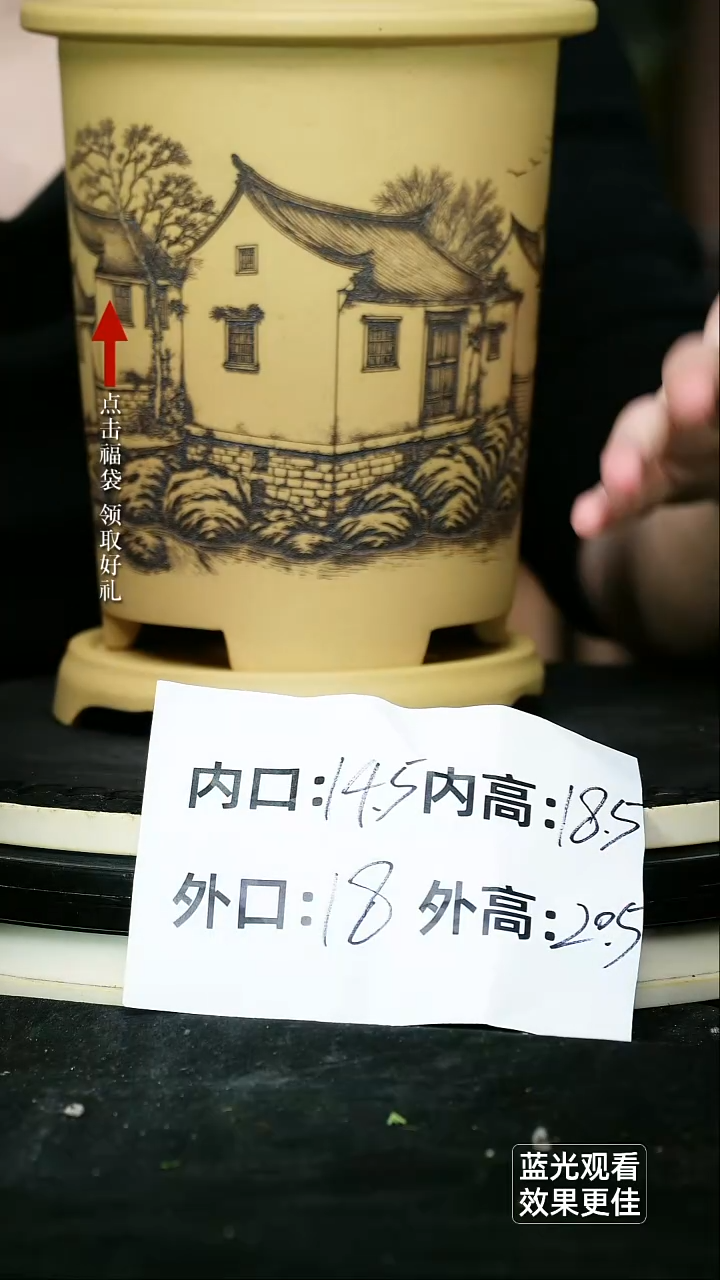 点击福袋 领取好礼
内口:14.5 内高:18.5
外口:18 外高:20.5
蓝光观看
效果更佳